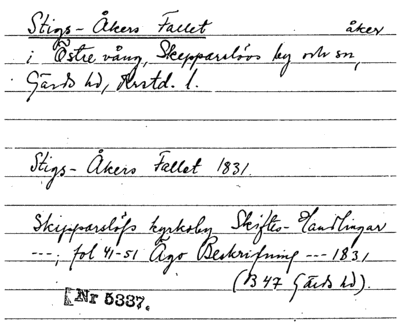 Stigs-Åkers Fallet åker
i Östre vång, Skepparslövs by och sn,
Gärds hd, Krstd. l.
Stigs-Åkers Fallet 1831.
Skipparslöfs kyrkoby Skiftes-Handlingar
---; fol 41-51 Ägo Beskrifning --- 1831
(B 47 Gärds hd).
Nr 5337.